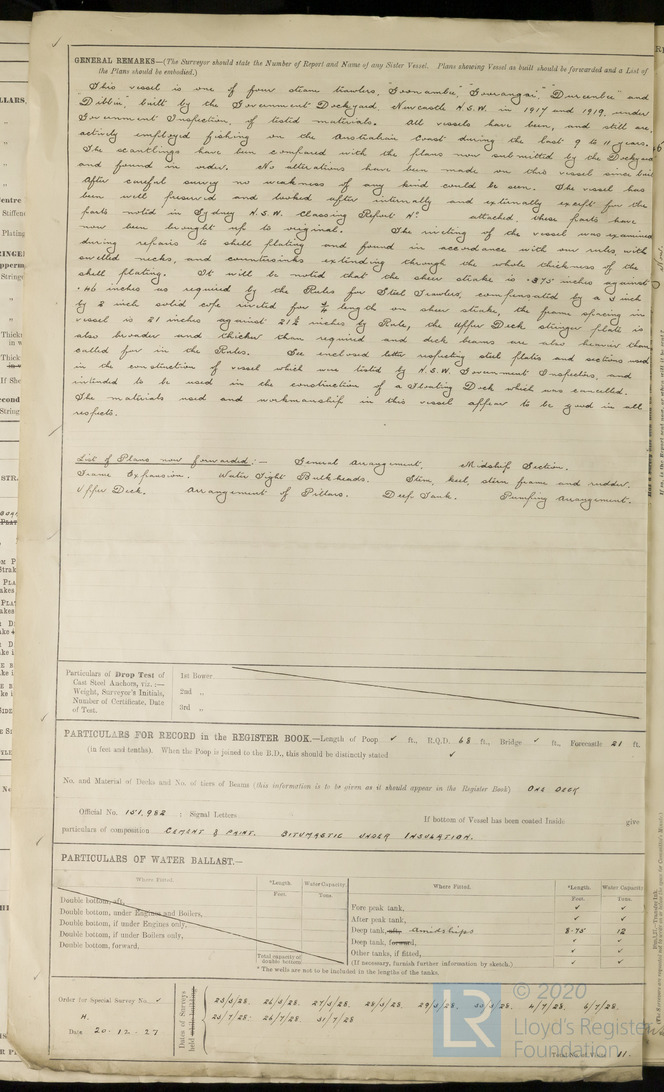 GENERAL REMARKS—(The Surveyor should state the Number of Report and Name of any Sister Vessel. Plans showing Vessel as built should be forwarded and a List of
the Plans should be embodied.)
This vessel is one of four steam trawlers, "Goonambee", "Gourangai", "Durenbee" and
"Dibbin" built by the Government Dockyard, Newcastle N.S.W. in 1917 and 1919, under
Government Inspection, of tested materials. All vessels have been, and still are,
actively employed fishing on the Australian Coast during the last 9 to 11 years.
The scantlings have been compared with the plans now submitted by the Dockyard
and found in order. No alterations have been made on this vessel since built
After careful survey no weakness of any kind could be seen. The vessel has
been well preserved and looked after internally and externally except for the
parts noted in Sydney N.S.W. Classing Report No attached, these parts have
now been brought up to original. The riveting of the vessel was examined
during repairs to shell plating and found in accordance with our rules, with
swelled necks, and countersinks extending through the whole thickness of the
shell plating. It will be noted that the sheer strake is .375 inches against
.46 inches as required by the Rules for Steel Trawlers, compensated by a 5 inch
by 2 inch solid cope riveted for ¾ length on sheer strake, the frame spacing in
vessel is 21 inches against 21½ inches by Rule, the Upper Deck stringer plate is
also broader and thicker than required and deck beams are also heavier than
called for in the Rules. See enclosed letter respecting steel plates and sections used
in the construction of vessel which was tested by N.S.W. Government Inspectors, and
intended to be used in the construction of a Floating Dock which was cancelled.
The materials used and workmanship in this vessel appear to be good in all
respects.
List of Plans now forwarded:— General Arrangement. Midship Section.
Frame Expansion. Water Tight Bulkheads. Stem, keel, stern frame and rudder.
Upper Deck. Arrangement of Pillars. Deep Tank. Pumping Arrangement.
Particulars of Drop Test of
Cast Steel Anchors, viz.:—
Weight, Surveyor's Initials,
Number of Certificate, Date
of Test.
1st Bower
2nd „
3rd „
PARTICULARS FOR RECORD in the REGISTER BOOK.—Length of Poop ✓ ft., R.Q.D. 68 ft., Bridge ✓ ft., Forecastle 21 ft.
(in feet and tenths). When the Poop is joined to the B.D., this should be distinctly stated ✓
No. and Material of Decks and No. of tiers of Beams (this information is to be given as it should appear in the Register Book) ONE DECK
Official No. 151,982 ; Signal Letters If bottom of Vessel has been coated Inside give
particulars of composition CEMENT & PAINT. BITUMASTIC UNDER INSULATION.
PARTICULARS OF WATER BALLAST.—
Where Fitted. *Length. Water Capacity. Where Fitted. *Length. Water Capacity
Feet. Tons. Feet. Tons.
Double bottom, aft,
Double bottom, under Engines and Boilers,
Double bottom, if under Engines only,
Double bottom, if under Boilers only,
Double bottom, forward,
Total capacity of double bottom
Fore peak tank, ✓ ✓
After peak tank, ✓ ✓
Deep tank, aft, Amidships 8.75 12
Deep tank, forward, ✓ ✓
Other tanks, if fitted, ✓ ✓
(If necessary, furnish further information by sketch.) ✓ ✓
* The wells are not to be included in the lengths of the tanks.
Order for Special Survey No. ✓
H.
Date 20.12.27
Dates of Surveys
held while building
25/5/28. 26/5/28. 27/5/28. 28/5/28. 29/5/28. 30/5/28. 4/7/28. 6/7/28.
25/7/28. 26/7/28. 31/7/28
Total No. of Visits 11.
© 2020
LR
Lloyd's Register
Foundation